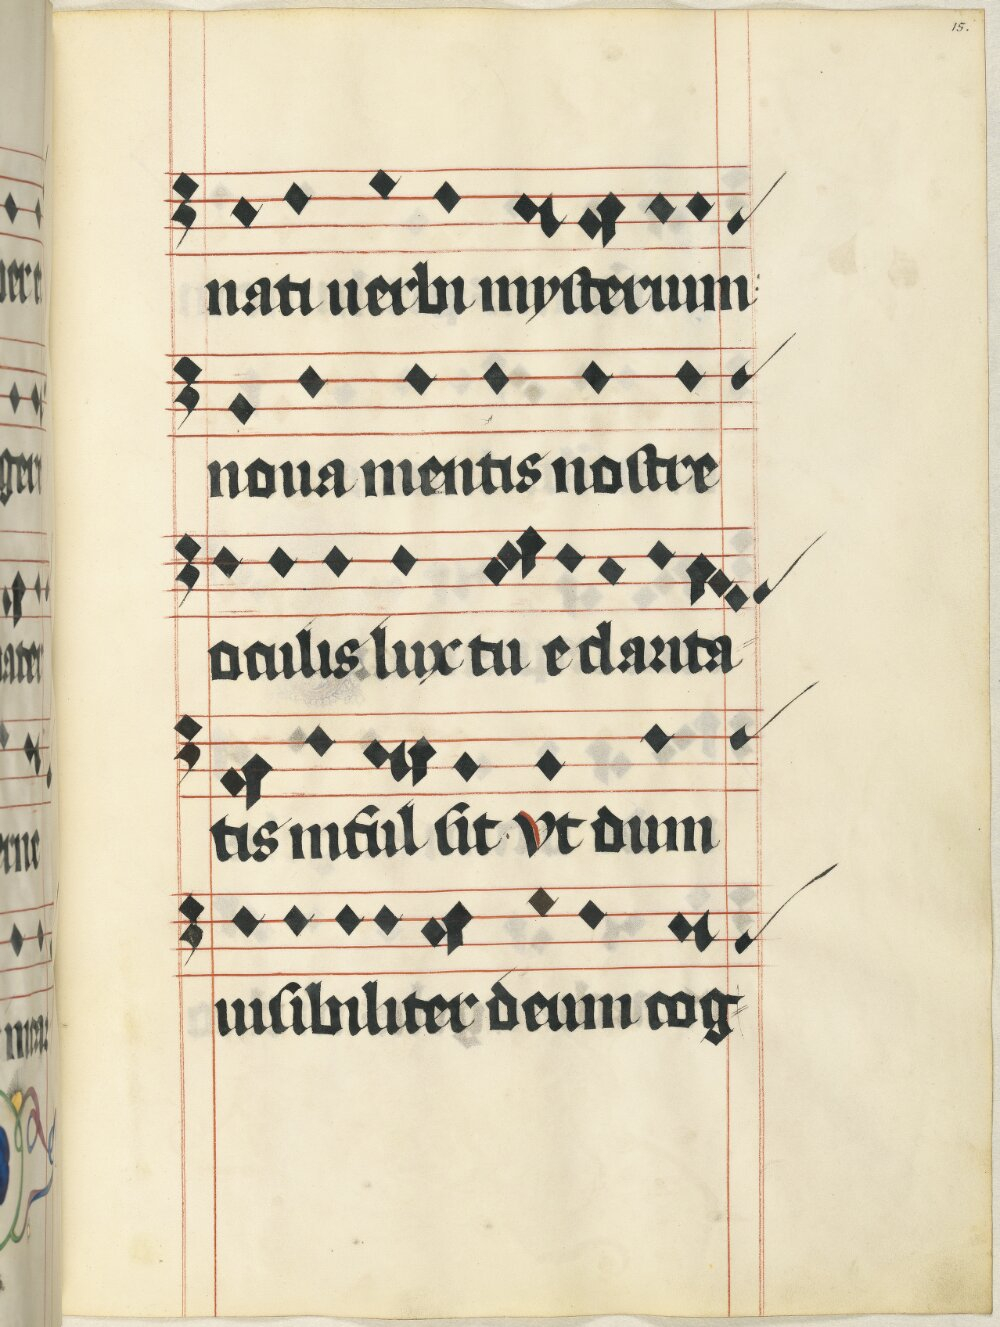 15.
nati uerbi mysterium
noua mentis nostre
oculis lux tu e clarita
tis infulsit Vt dum
uisibiliter deum cog